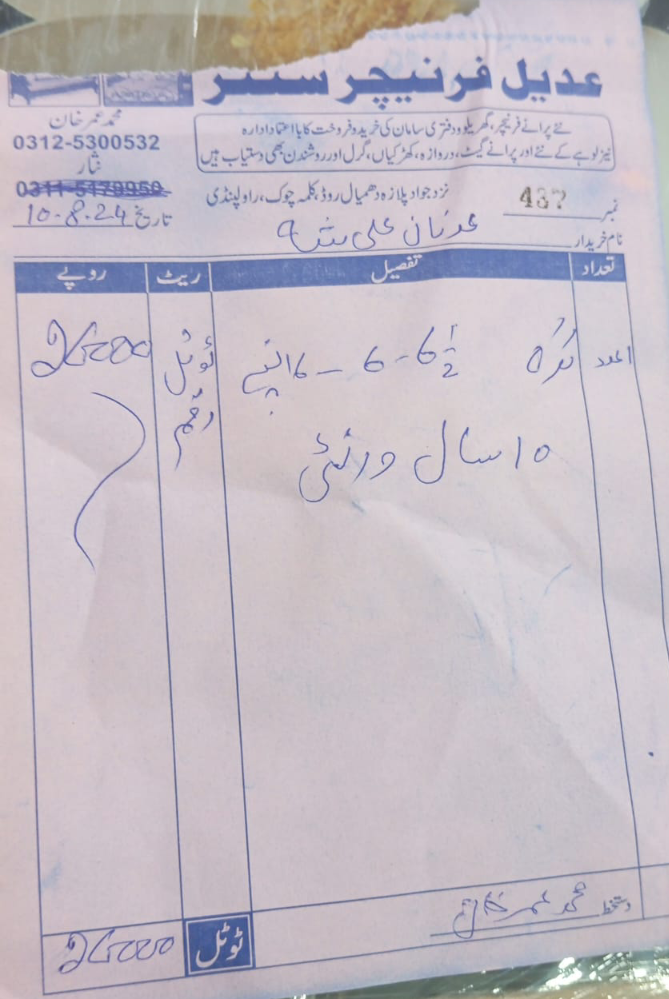 عدیل فرنیچر سنٹر
نئے پرانے فرنیچر، گھریلو و دفتری سامان کی خرید و فروخت کا با اعتماد ادارہ
نیز لوہے کے نئے اور پرانے گیٹ، دروازہ، کھڑکیاں، گرل اور روشندن بھی دستیاب ہیں
محمد عمر خان
0312-5300532
نثار
0311-5179950
نزد جواد پلازہ دھمیال روڈ، کلمہ چوک، راولپنڈی
نمبر 437
تاریخ 10-8-24
نام خریدار عدنان علی
تعداد تفصیل ریٹ روپے
1 عدد 6½ - 6 - 6 انچ ٹوٹل رقم 26000
10 سال ورنٹی
دستخط محمد عمر خان
ٹوٹل 26000